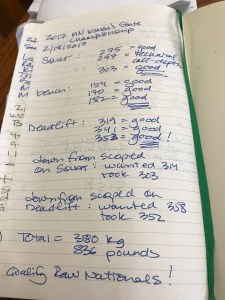 2017 MN Women's State
Championship
2/18/2017
Squat: 275 = good
303 = good
Bench: 154 = good
170 = good
182 = good
Deadlift: 314 = good
341 = good
352 = good!
down from scoped
on Squat: wanted 314
took 303
down from scoped on
Deadlift: wanted 358
took 352
Total = 380 kg
836 pounds
Qualify Raw Nationals!